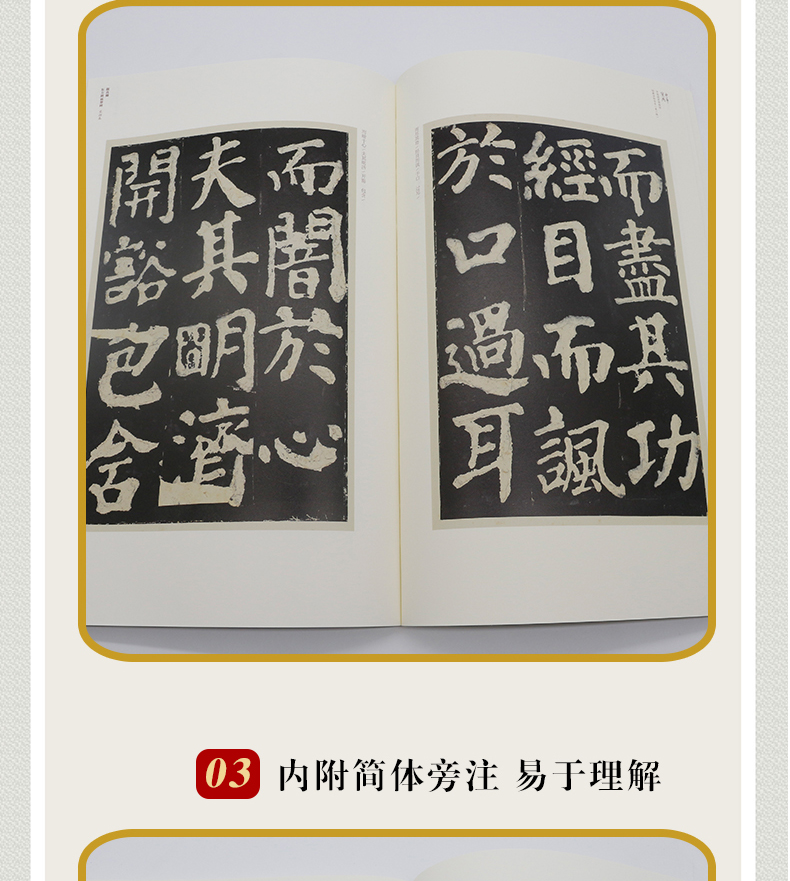 而盡其功
經目而諷
於口過耳
而闇於心
夫其明濟
開豁包含
03 内附简体旁注 易于理解